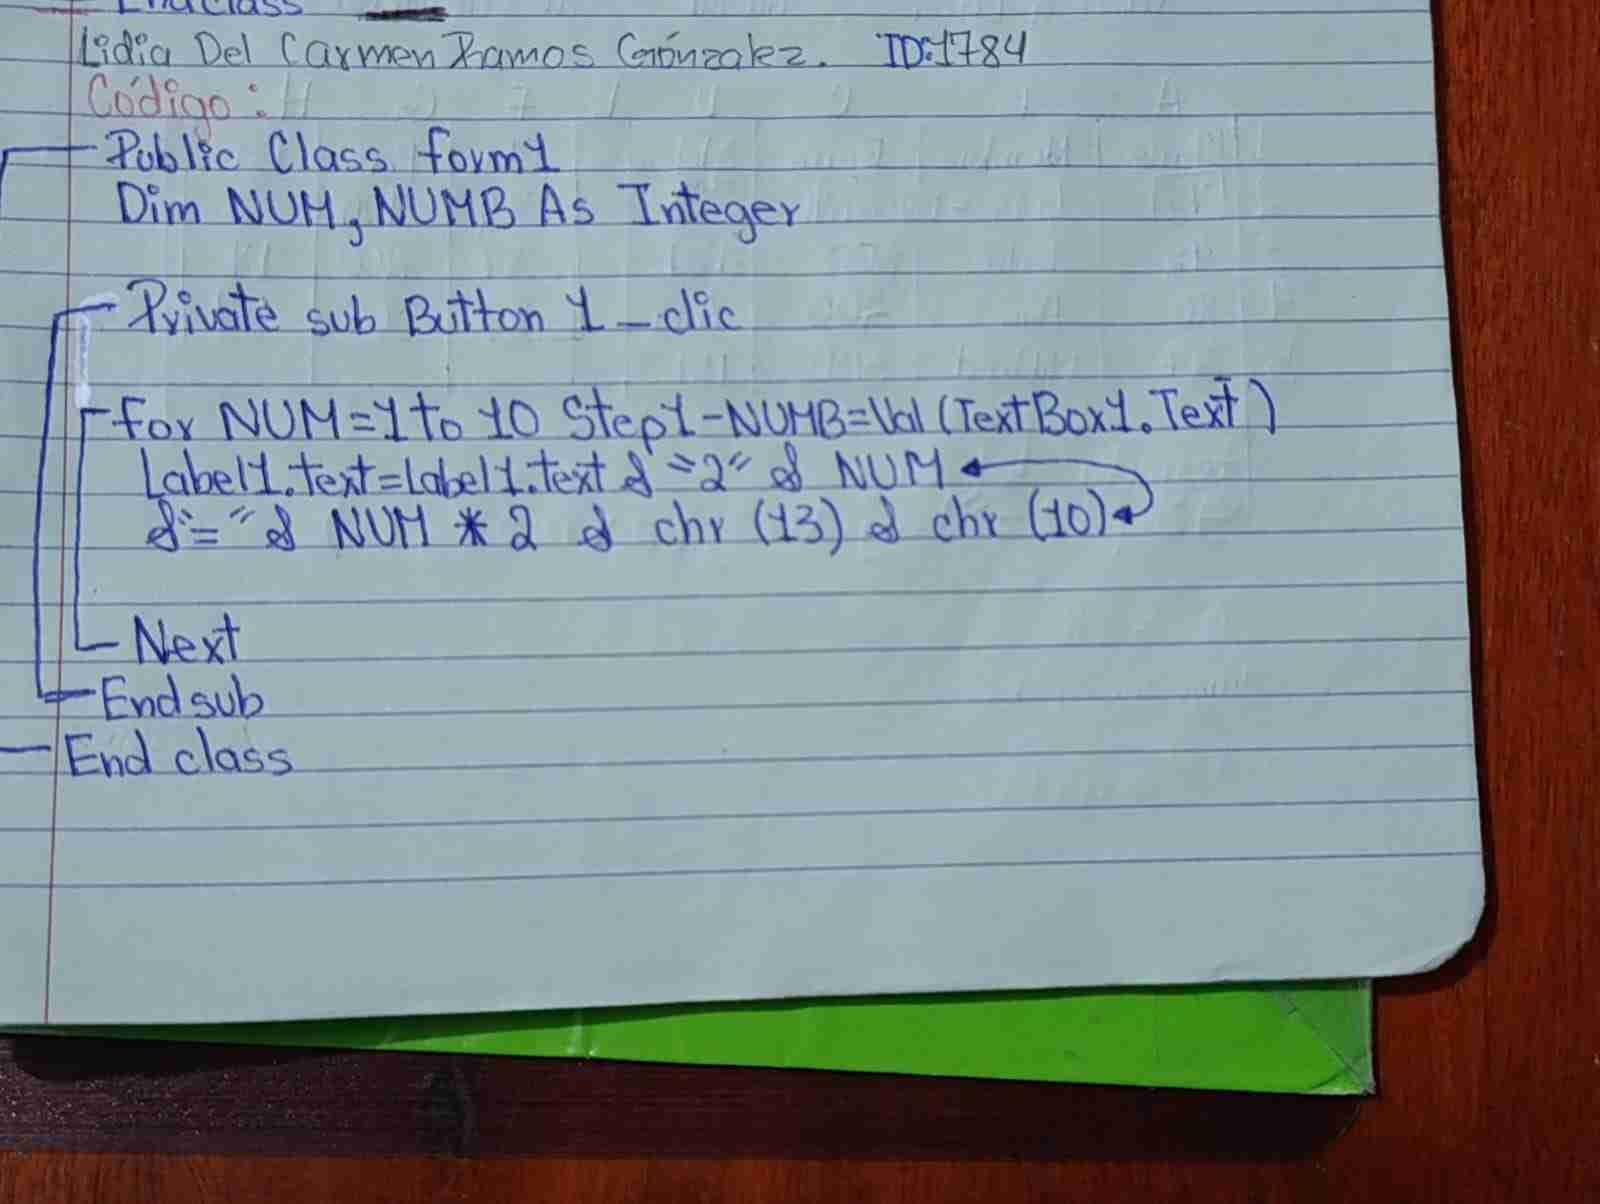 End class
Lidia Del Carmen Ramos Gónzalez. ID:1784
Código:
Public Class form1
Dim NUM, NUMB As Integer
Private sub Button 1_clic
for NUM=1 to 10 Step1-NUMB=Val (TextBox1.Text)
Label1.text=Label1.text & "2" & NUM
&"="& NUM * 2 & chr (13) & chr (10)
Next
End sub
End class